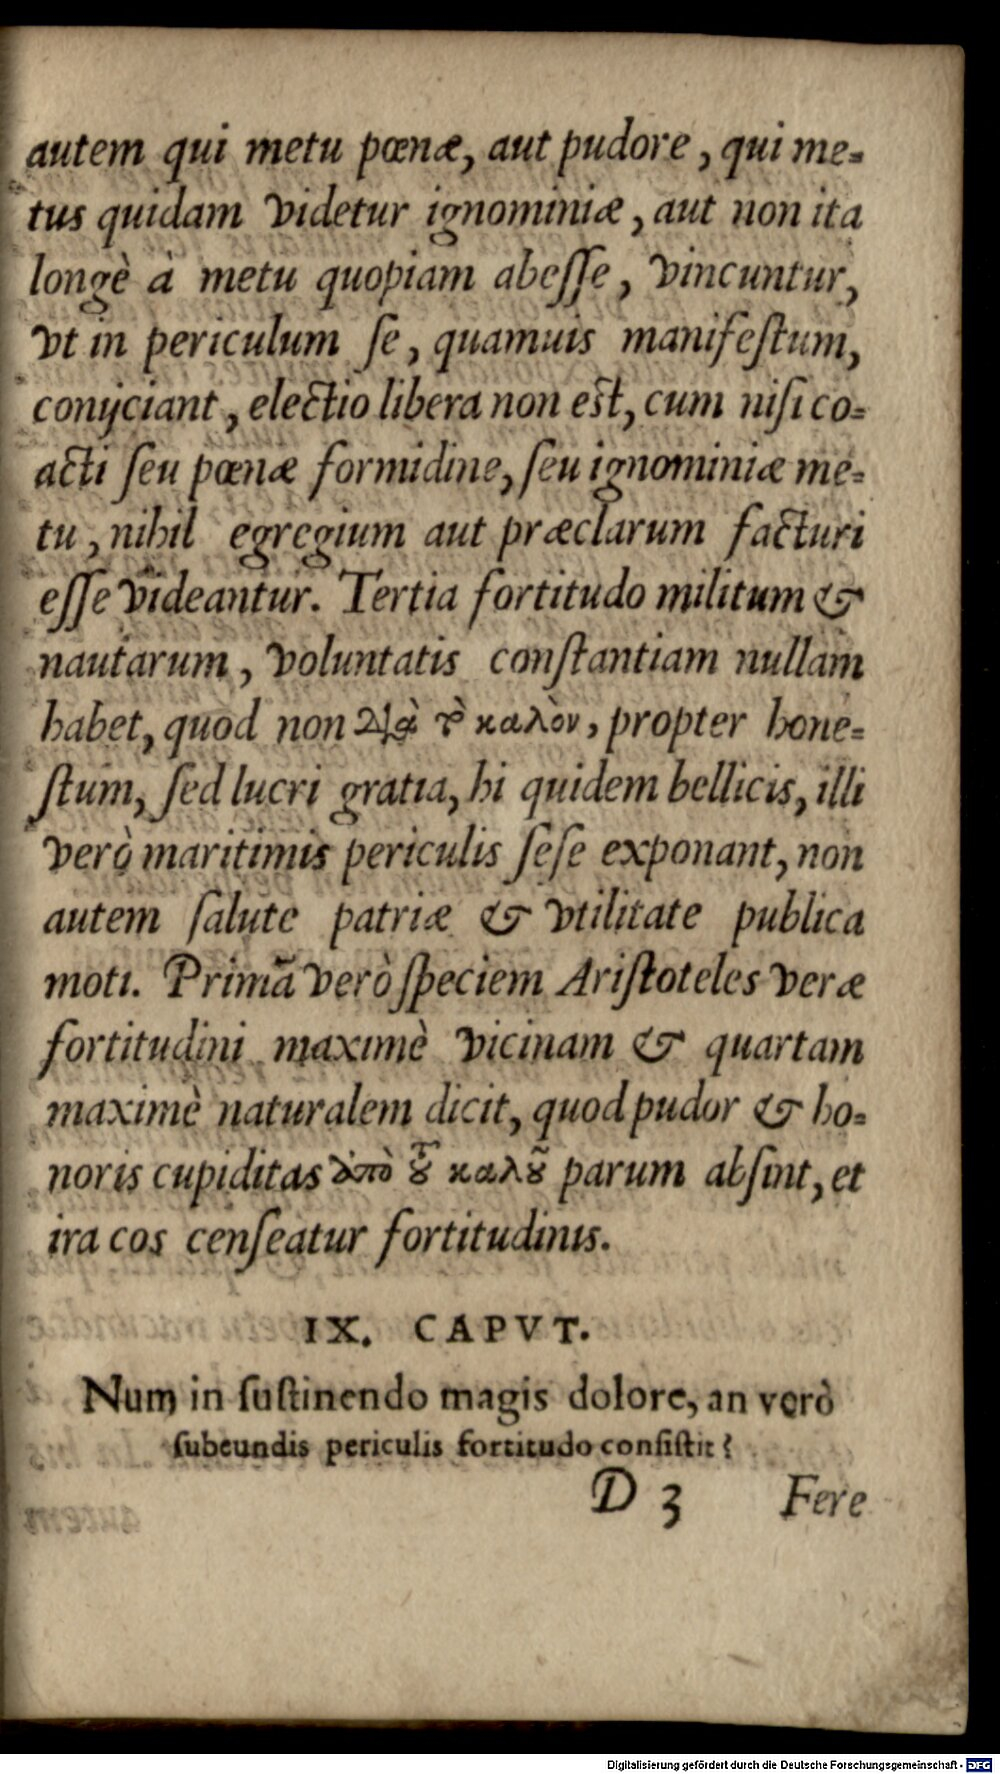 autem qui metu pœnæ, aut pudore, qui me-
tus quidam videtur ignominiæ, aut non ita
longè à metu quopiam abeſſe, vincuntur,
vt in periculum ſe, quamuis manifeſtum,
conijciant, electio libera non eſt, cum niſi co-
acti ſeu pœnæ formidine, ſeu ignominiæ me-
tu, nihil egregium aut præclarum facturi
eſſe videantur. Tertia fortitudo militum &
nautarum, voluntatis conſtantiam nullam
habet, quod non διὰ τὸ καλὸν, propter hone-
ſtum, ſed lucri gratia, hi quidem bellicis, illi
verò maritimis periculis ſeſe exponant, non
autem ſalute patriæ & vtilitate publica
moti. Primā verò ſpeciem Ariſtoteles veræ
fortitudini maximè vicinam & quartam
maximè naturalem dicit, quod pudor & ho-
noris cupiditas ἀπὸ τοῦ καλοῦ parum abſint, et
ira cos cenſeatur fortitudinis.
IX. CAPVT.
Num in ſuſtinendo magis dolore, an verò
ſubeundis periculis fortitudo conſiſtit?
D 3 Fere
Digitalisierung gefördert durch die Deutsche Forschungsgemeinschaft - DFG